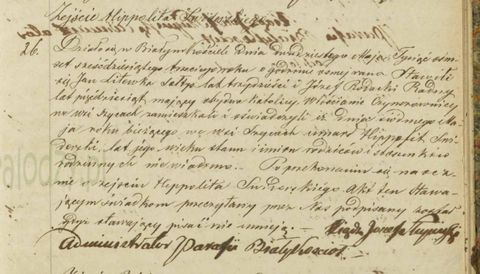 Zejście Hippolita Świderskiego
26. Działo się w Białym Kościele dnia dwudziestego Maja Tysiąc ośm
set sześćdziesiątego roku o godzinie ósmej rano Stawili
się Jan Litewka Sołtys lat trzydzieści i Józef Radny
lat pięćdziesiąt mający obydwa katolicy Włościanie Czynszownicy
we wsi Szycach zamieszkali i oświadczyli iż dnia Ma
ja roku bieżącego we wsi Szycach umarł Hippolit Świ
derski, lat jego wieku stanu i imion rodziców i stosunków
rodzinnych nie wiadomo. Po przekonaniu się na oczn
ie o zejściu Hippolita Świderskiego Akt ten Stawa
jącym świadkom przeczytany przez Nas podpisany został
gdyż stawający pisać nie umieją. Xiądz Józef
Administrator Parafii Białykościoł.